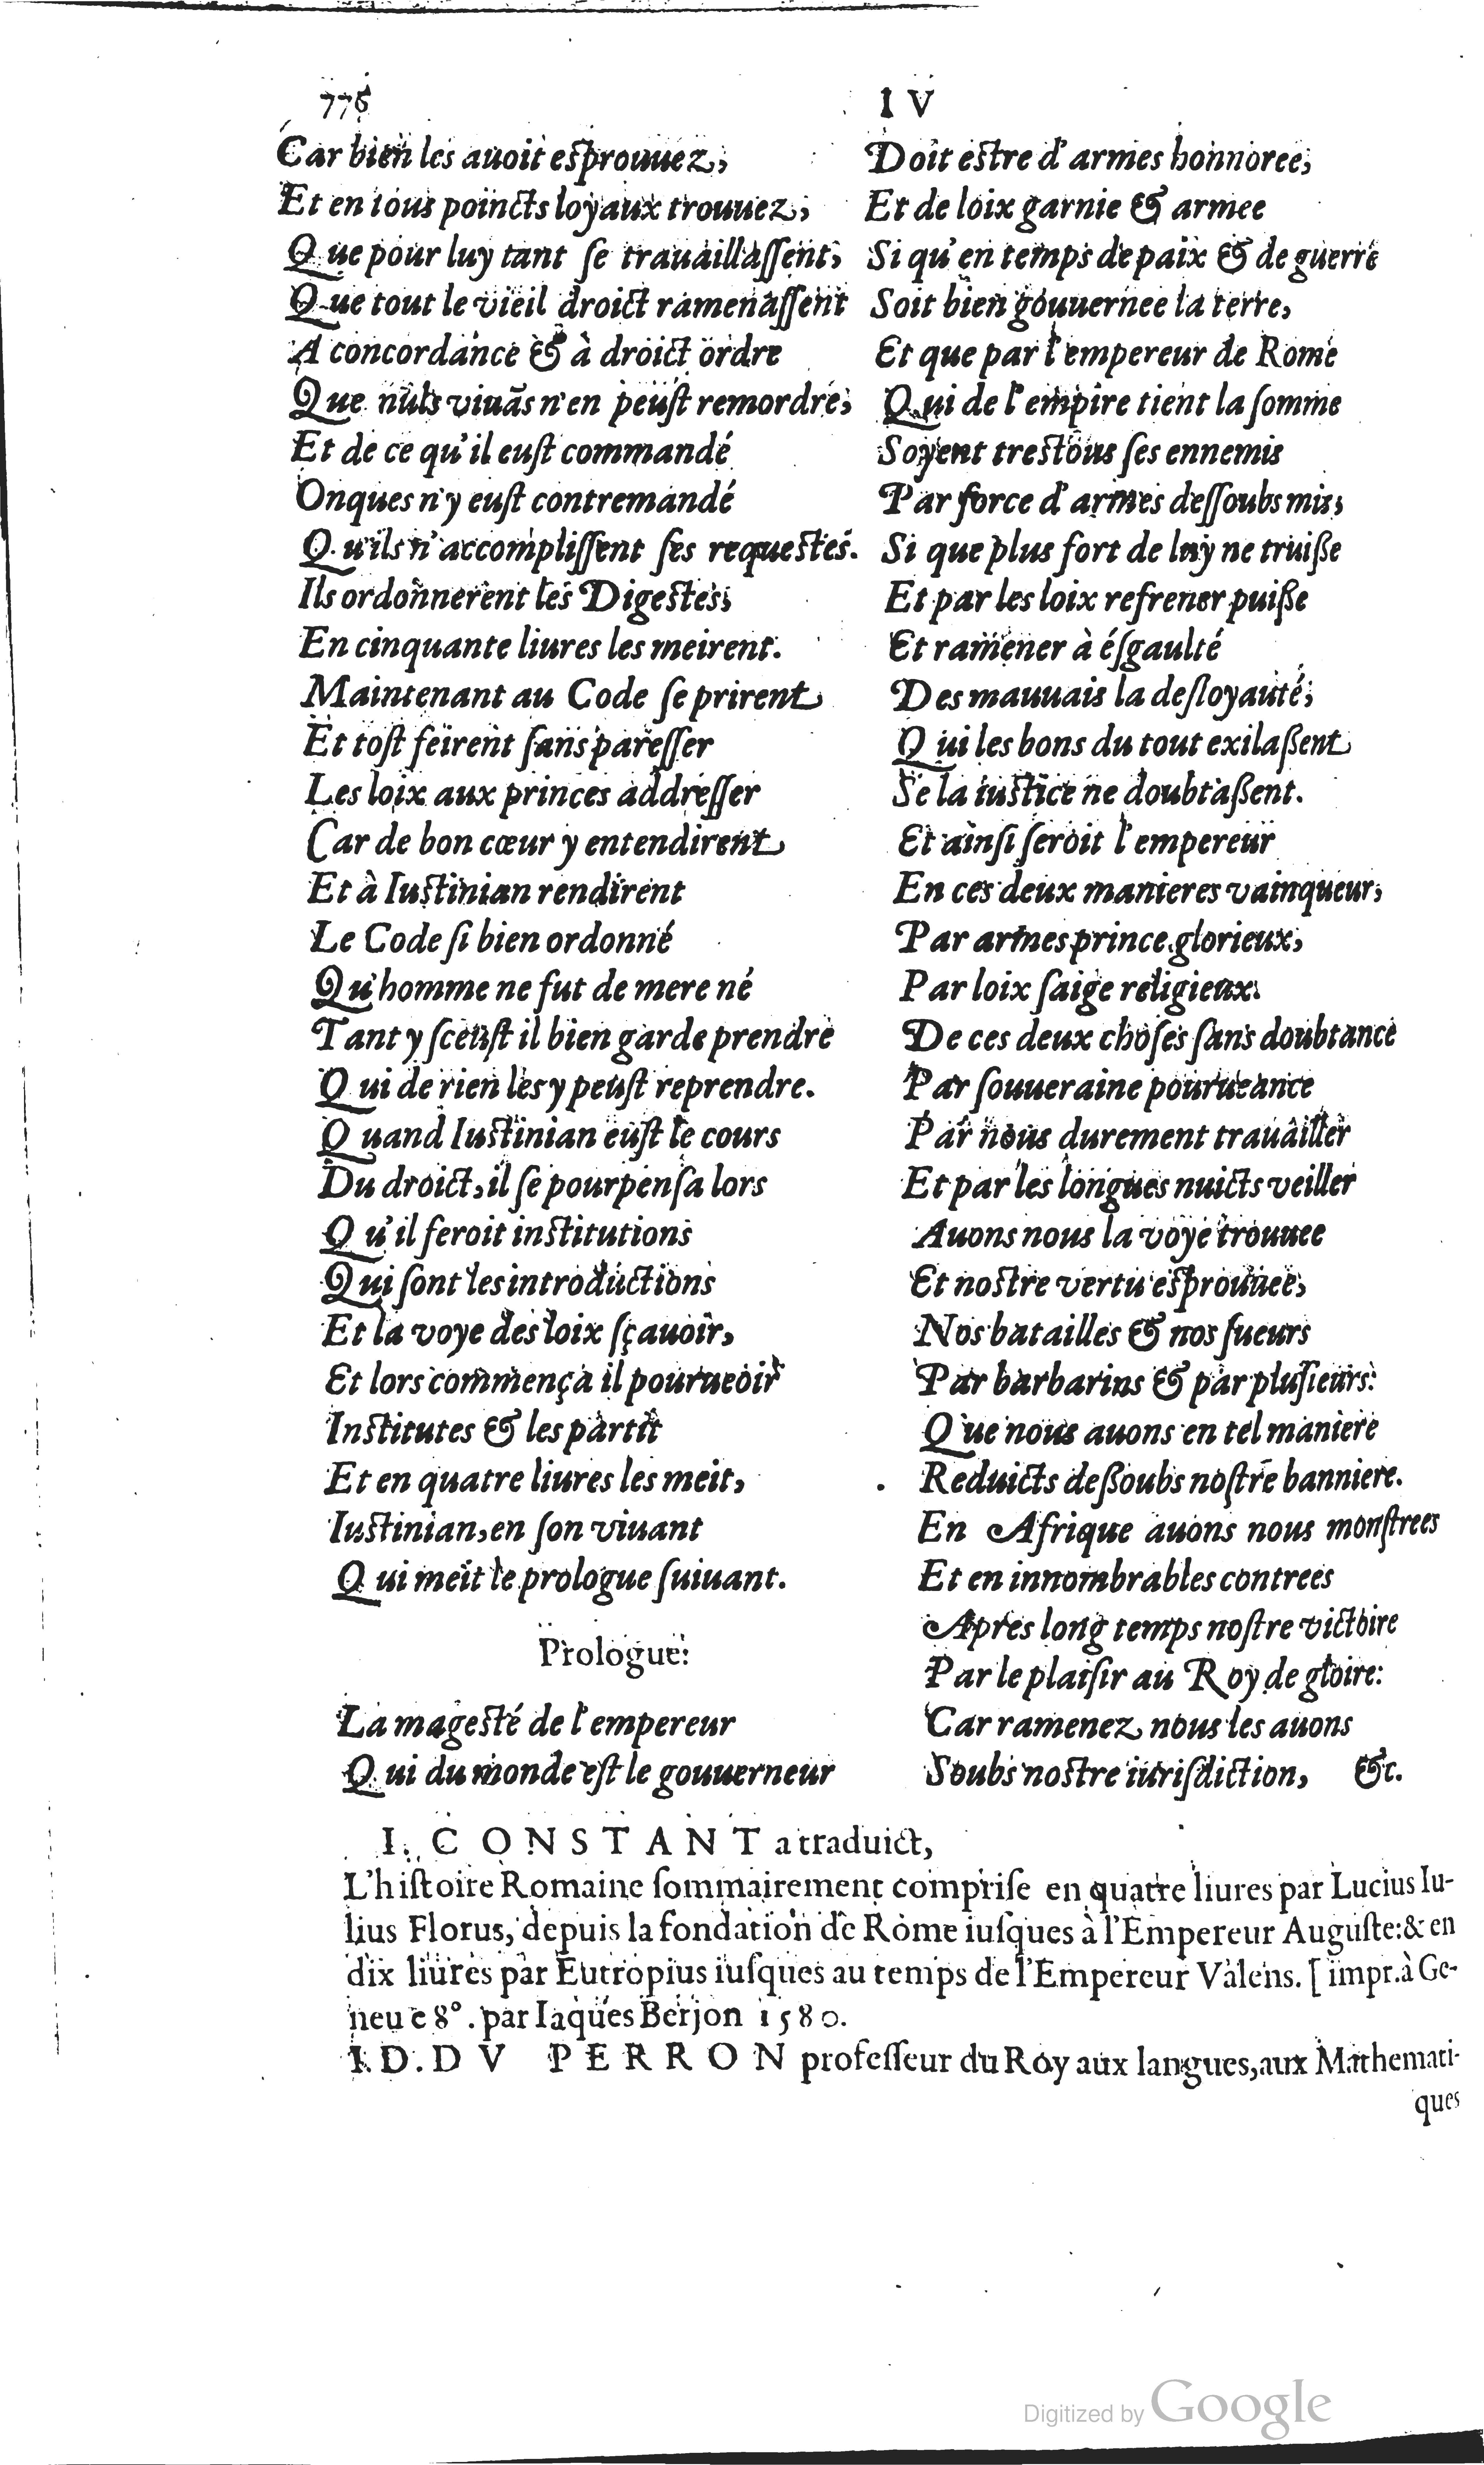 776
I V
Car bien les auoit esprouuez,
Et en tous poincts loyaux trouuez,
Que pour luy tant se trauaillassent,
Que tout le vieil droict ramenassent
A concordance & à droict ordre
Que nuls viuãs n'en peust remordre,
Et de ce qu'il eust commandé
Onques n'y eust contremandé
Qu'ils n'accomplissent ses requestes.
Ils ordonnerent les Digestes,
En cinquante liures les meirent.
Maintenant au Code se prirent
Et tost feirent sans paresser
Les loix aux princes addresser
Car de bon cœur y entendirent
Et à Iustinian rendirent
Le Code si bien ordonné
Qu'homme ne fut de mere né
Tant y sceust il bien garde prendre
Qui de rien les y peust reprendre.
Quand Iustinian eust le cours
Du droict, il se pourpensa lors
Qu'il feroit institutions
Qui sont les introductions
Et la voye des loix sçauoir,
Et lors commença il pourueoir
Institutes & les partit
Et en quatre liures les meit,
Iustinian, en son viuant
Qui meit le prologue suiuant.
Prologue.
La magesté de l'empereur
Qui du monde est le gouuerneur
Doit estre d'armes honnoree,
Et de loix garnie & armee
Si qu'en temps de paix & de guerre
Soit bien gouuernee la terre,
Et que par l'empereur de Rome
Qui de l'empire tient la somme
Soyent trestous ses ennemis
Par force d'armes dessoubs mis,
Si que plus fort de luy ne truisse
Et par les loix refrener puisse
Et ramener à ésgaulté
Des mauuais la desloyauté,
Qui les bons du tout exilassent
Se la iustice ne doubtassent.
Et ainsi seroit l'empereur
En ces deux manieres vainqueur,
Par armes prince glorieux,
Par loix saige religieux.
De ces deux choses sans doubtance
Par souueraine pourueance
Par nous durement trauailler
Et par les longues nuicts veiller
Auons nous la voye trouuee
Et nostre vertu esprouuee,
Nos batailles & nos sueurs
Par barbarins & par plusieurs:
Que nous auons en tel maniere
Reduicts dessoubs nostre banniere.
En Afrique auons nous monstrees
Et en innombrables contrees
Apres long temps nostre victoire
Par le plaisir au Roy de gloire:
Car ramenez nous les auons
Soubs nostre iurisdiction, &c.
I. CONSTANT a traduict,
L'histoire Romaine sommairement comprise en quatre liures par Lucius Iu-
lius Florus, depuis la fondation de Rome iusques à l'Empereur Auguste: & en
dix liures par Eutropius iusques au temps de l'Empereur Valens. [impr. à Ge-
neue 8°. par Iaques Berjon 1580.
I. D. DV PERRON professeur du Roy aux langues, aux Mathemati-
ques
Digitized by Google